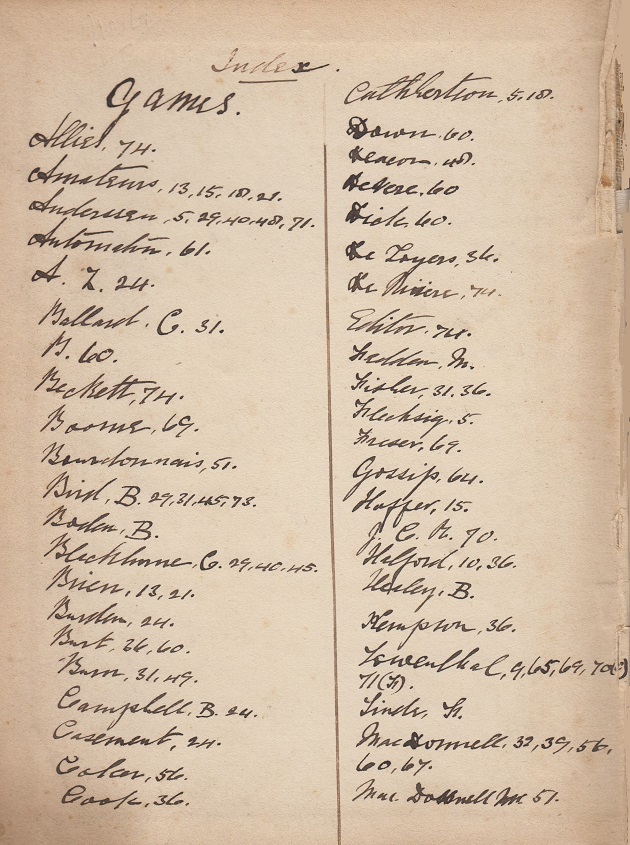 Index.
Games.
Allies, 74.
Amateurs, 13, 15, 18, 21.
Anderssen, 5, 29, 40, 48, 71.
Automaton, 61.
A. Z. 24.
Ballard. C. 31.
B. 60.
Beckett, 74.
Boorne, 69.
Bourdonnais, 51.
Bird, B. 29, 31, 45, 73.
Boden, B.
Blackburne, C. 29, 40, 45.
Brien, 13, 21.
Burden, 24.
Burt, 26, 60.
Burn, 31, 49.
Campbell, B. 24.
Casement, 24.
Coker, 56.
Cook, 36.
Cuthbertson, 5, 18.
Dawn. 60.
Deacon. 48.
DeVere. 60
Dick. 60.
De Loyers, 36.
De Riviere, 74.
Editor. 74.
Fedden, M.
Fisher, 31, 36.
Flechsig. 5.
Fraser, 69.
Gossip, 64.
Hoffer, 15.
J. C. R. 70.
Halford, 10, 36.
Healey, B.
Kempson, 36.
Lowenthal, 9, 65, 69, 70
71(F).
Linde,
MacDonnell, 32, 39, 56,
60, 67.
Mac. Donnell 51.